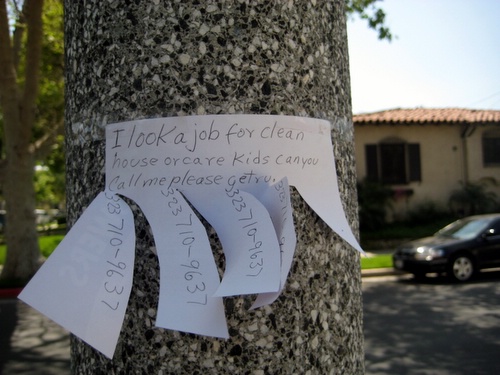 I look a job for clean
house or care kids can you
call me please getry.
323 710-9637
323 710-9637
323 710-9637